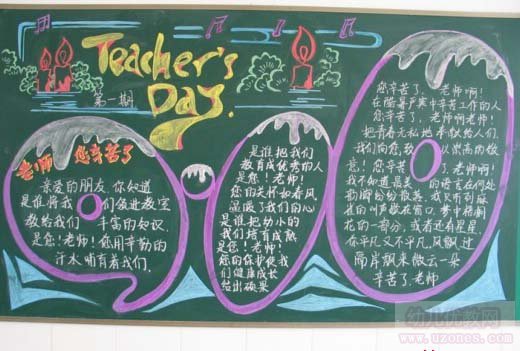 Teacher's
Day.
第一期
老师 您辛苦了
亲爱的朋友 你知道
是谁将我们领进教室
教给我们 丰富的知识
是您!老师!您用辛勤的
汗水哺育着我们.
是谁把我们
教育成优秀的人
是您!老师!
您的关怀如春风
温暖了我们的心
是谁把幼小的
我们培育成熟
是您!老师!
您的保护使我
们健康成长
结出硕果
您辛苦了,老师啊!
在酷暑严寒中辛苦工作的人
您辛苦了,老师啊老师!
把青春无私地奉献给人们.
我们向您致 以崇高的敬
意!您辛苦了 老师啊!
我不知道最美 的语言在何处
的叫声
花的一部分,或者还有星星
你平凡又不平凡,风飘过
两岸飘来做云一朵
辛苦了.老师
幼儿优教网
www.uzones.com